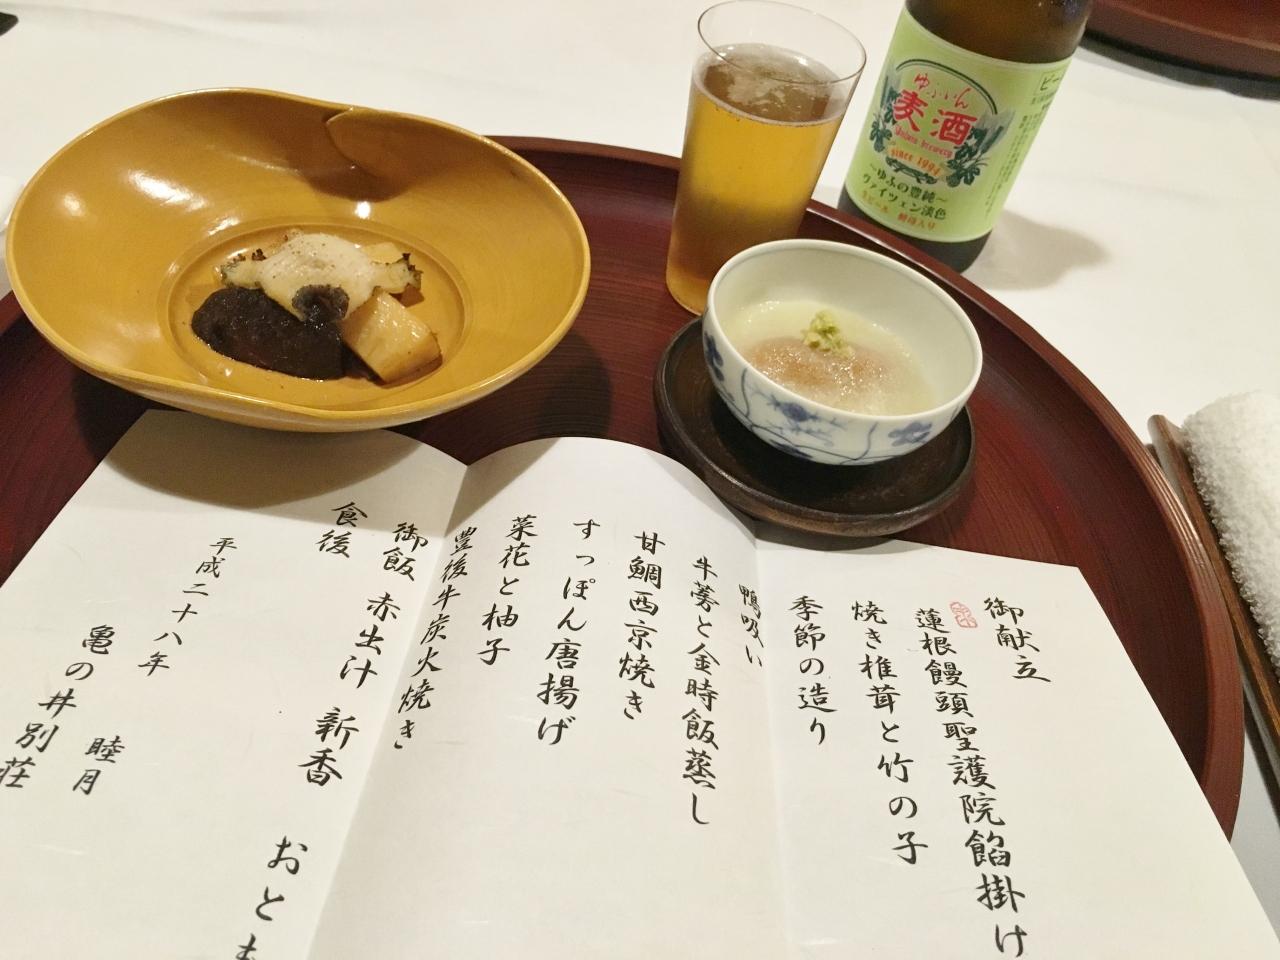 御献立
蓮根饅頭聖護院餡掛け
焼き椎茸と竹の子
季節の造り
鴨吸い
牛蒡と金時飯蒸し
甘鯛西京焼き
すっぽん唐揚げ
菜花と柚子
豊後牛炭火焼き
御飯 赤出汁 新香
食後
おとも
平成二十八年 睦月
亀の井別荘
ゆふいん
麦酒
Yufuin brewery
since 1994
～ゆふの豊純～
ヴァイツェン淡色
生ビール 酵母入り
ビー